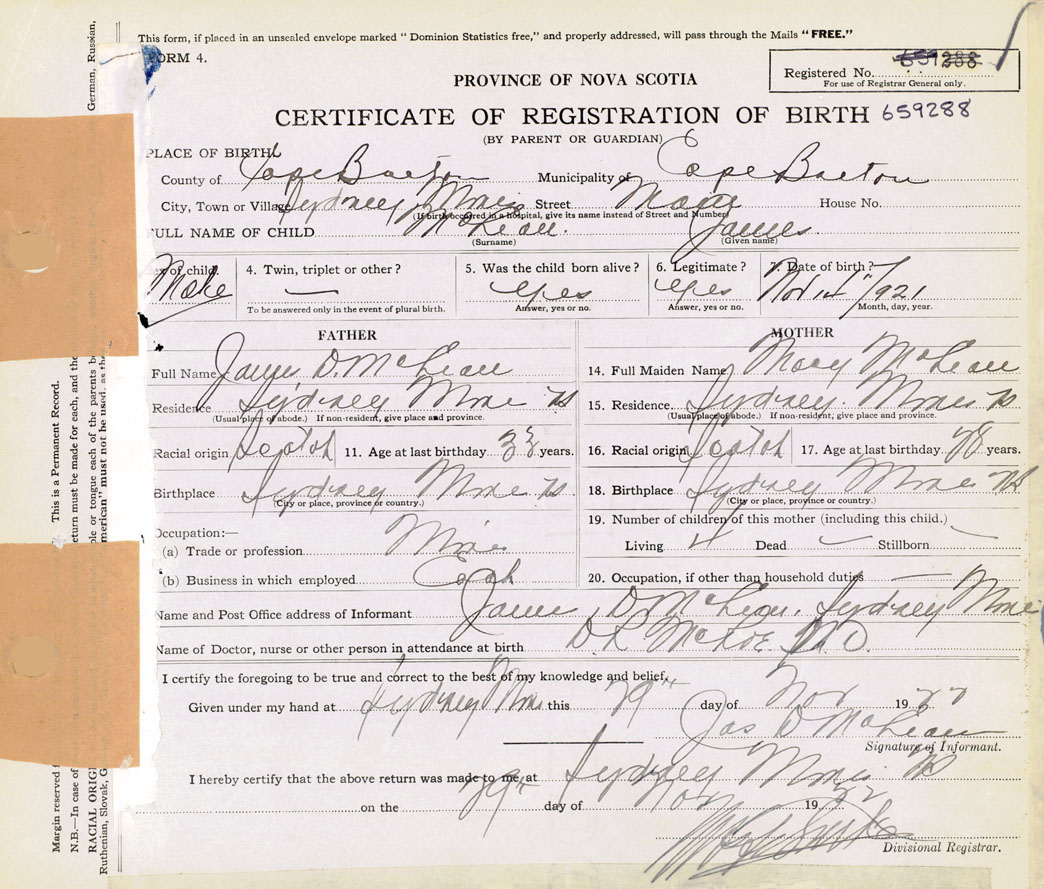 This form, if placed in an unsealed envelope marked " Dominion Statistics free," and properly addressed, will pass through the Mails "FREE."
ORM 4.
PROVINCE OF NOVA SCOTIA
Registered No. 659288
For use of Registrar General only.
CERTIFICATE OF REGISTRATION OF BIRTH 659288
(BY PARENT OR GUARDIAN)
PLACE OF BIRTH
County of Cape Breton Municipality of Cape Breton
City, Town or Village Sydney Mines Street Main House No.
(If birth occurred in a hospital, give its name instead of Street and Number)
FULL NAME OF CHILD McLean. James.
(Surname) (Given name)
Sex of child. 4. Twin, triplet or other? 5. Was the child born alive? 6. Legitimate? 7. Date of birth?
Male — yes yes Nov 14" 1921
To be answered only in the event of plural birth. Answer, yes or no. Answer, yes or no. Month, day, year.
FATHER MOTHER
Full Name James D. McLean 14. Full Maiden Name Mary McLean
Residence Sydney Mines NS 15. Residence. Sydney Mines NS
(Usual place of abode.) If non-resident, give place and province. (Usual place of abode.) If non-resident, give place and province.
Racial origin Scotch 11. Age at last birthday 33 years. 16. Racial origin Scotch 17. Age at last birthday 28 years.
Birthplace Sydney Mines NS 18. Birthplace Sydney Mines NS
(City or place, province or country.) (City or place, province or country.)
19. Number of children of this mother (including this child.)
Occupation:—
(a) Trade or profession Miner Living 4 Dead — Stillborn —
(b) Business in which employed Coal 20. Occupation, if other than household duties —
Name and Post Office address of Informant James D McLean. Sydney Mines
Name of Doctor, nurse or other person in attendance at birth D. L. M.D.
I certify the foregoing to be true and correct to the best of my knowledge and belief,
Given under my hand at Sydney Mines this 29" day of Nov 1922
Jas D McLean
Signature of Informant.
I hereby certify that the above return was made to me, at Sydney Mines NS
on the 29" day of Nov 1922
Divisional Registrar.
Margin reserved f
This is a Permanent Record.
N.B.—In case of
eturn must be made for each, and the
RACIAL ORIG
ple or tongue each of the parents b
German, Russian,
Ruthenian, Slovak, G
merican" must not be used, as th